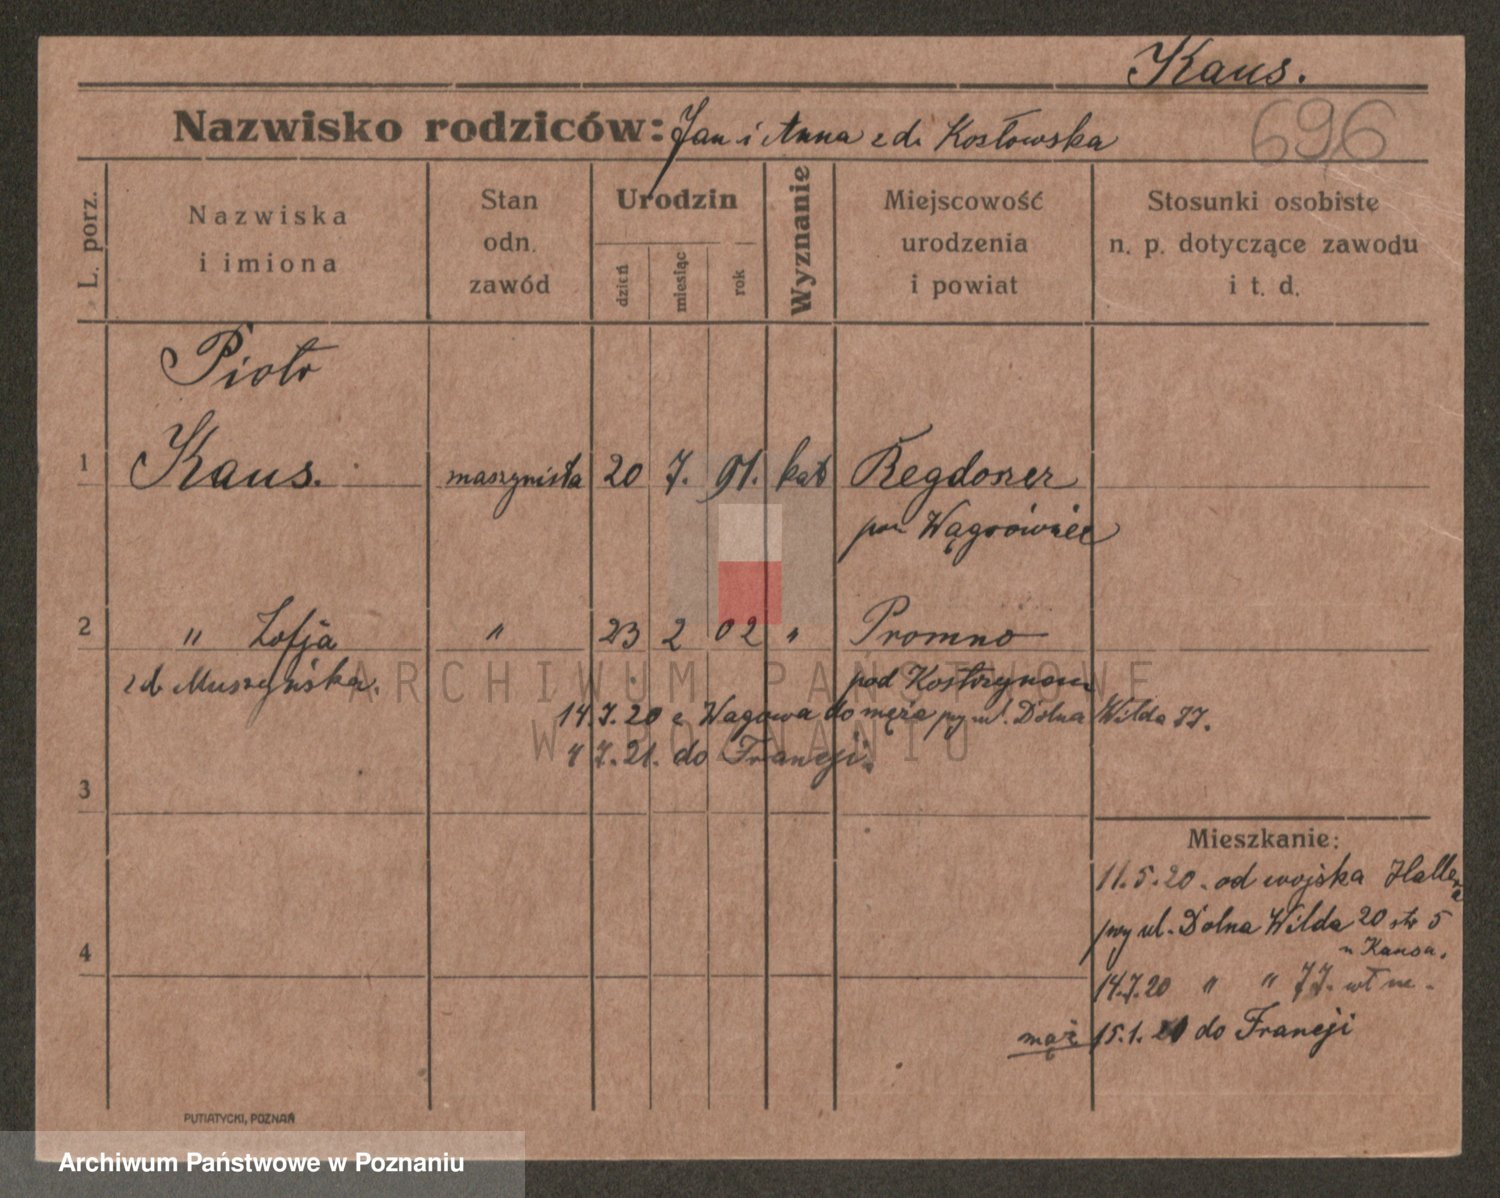 Kaus.
Nazwisko rodziców: Jan i Anna z d. Kosłowska
696
L. porz.
Nazwiska i imiona
Stan odn. zawód
Urodzin
dzień
miesiąc
rok
Wyznanie
Miejscowość urodzenia i powiat
Stosunki osobiste n. p. dotyczące zawodu i t. d.
Piotr
1 Kaus. maszynista 20 7. 91. kat
pow Wągrówiec
2 " Zofja " 23 2 02 " Promno
z d. Muszyńska. pod Kostrzynem
14.7.20 z Wagowa do męża przy ul. Dolna Wilda 77.
4 7.21. do Francji.
3
Mieszkanie:
11.5.20. od wojska Hallera
przy ul. Dolna Wilda 20 str 5
u Kausa.
4
14.7.20 " " 77. wł m.
mąż 15.1. do Francji
PUTIATYCKI, POZNAŃ
ARCHIWUM PAŃSTWOWE
W POZNANIU
Archiwum Państwowe w Poznaniu